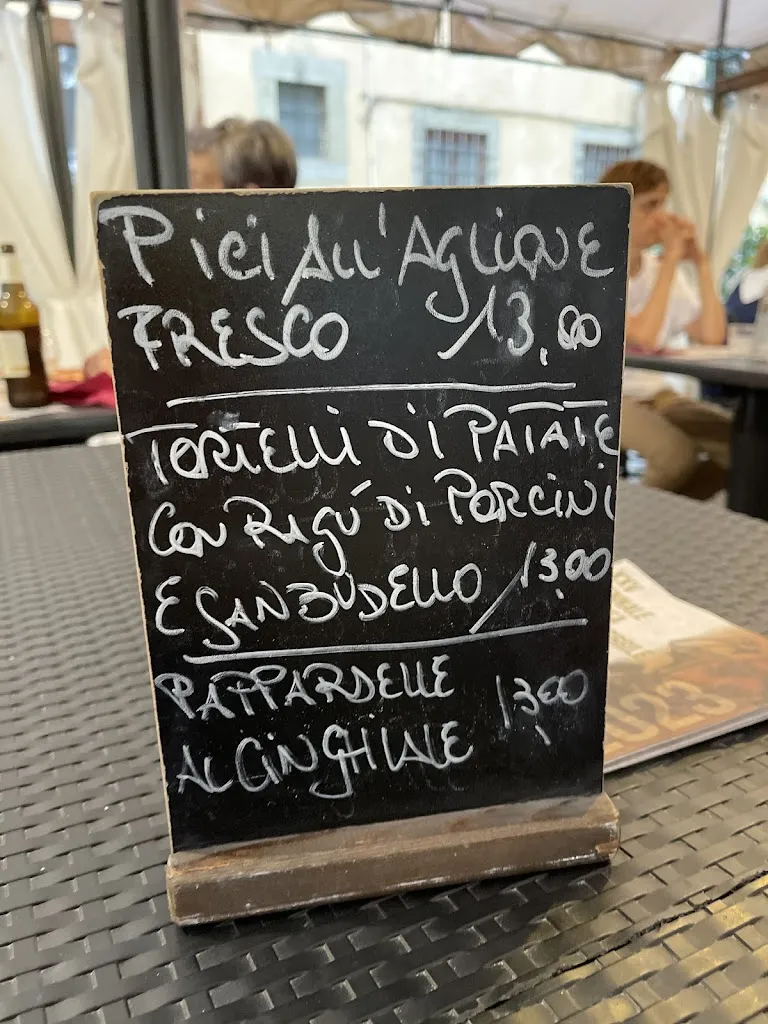 Pici All'AGLIONE
FRESCO 13,00
TORTELLI Di PATATE
Con RAgú Di PORCINi
E SANBUDELLO 13,00
PAPPARDELLE 13,00
AL CiNGHiALE
2023